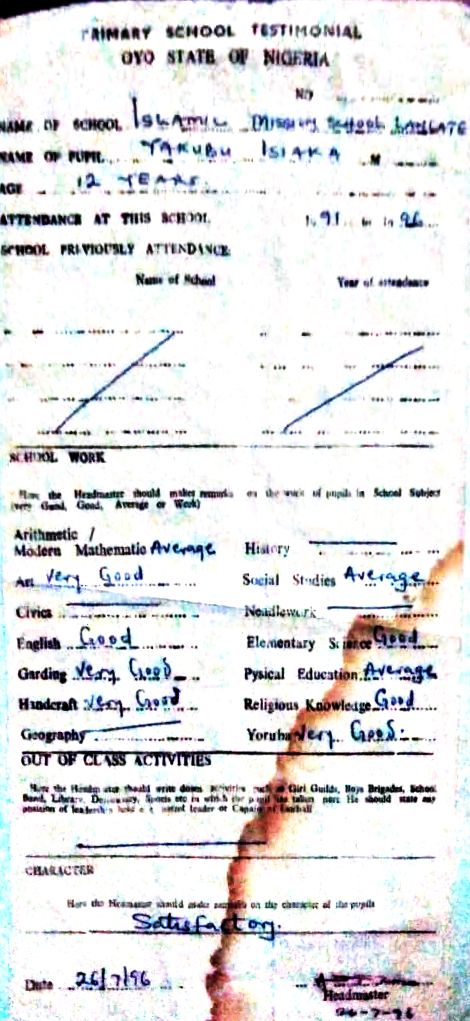 PRIMARY SCHOOL TESTIMONIAL
OYO STATE OF NIGERIA
NO
NAME OF SCHOOL ISLAMIC MISSION SCHOOL
NAME OF PUPIL YAKUBU ISIAKA M
AGE 12 YEARS
ATTENDANCE AT THIS SCHOOL 1991 to 1996
SCHOOL PREVIOUSLY ATTENDANCE
Name of School Year of attendance
SCHOOL WORK
Here the Headmaster should makes remarks on the work of pupils in School Subject
(very Good, Good, Average or Weak)
Arithmetic /
Modern Mathematic Average History
Art Very Good Social Studies Average
Civics Needlework
English Good Elementary Science Good
Garding Very Good Pysical Education Average
Handcraft Very Good Religious Knowledge Good
Geography Yoruba Very Good
OUT OF CLASS ACTIVITIES
Here the Headmaster should write down activities such as Girl Guilds, Boys Brigades, School
Band, Library, Sports etc in which the pupil has taken part. He should state any
position of leadership
CHARACTER
Here the Headmaster should make remarks on the character of the pupils
Satisfactory.
Date 26/7/96
Headmaster
26-7-96